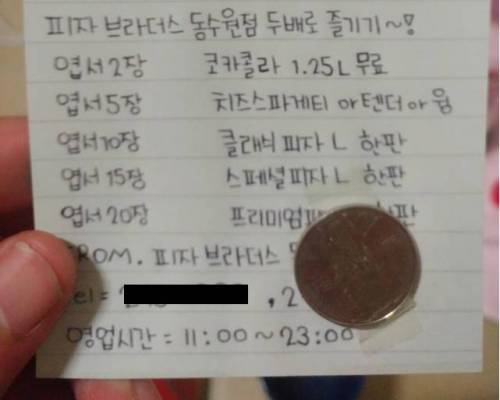 피자 브라더스 동수원점 두배로 즐기기~!
엽서 2장 코카콜라 1.25L 무료
엽서 5장 치즈스파게티 or 텐더 or 윙
엽서 10장 클래식 피자 L 한판
엽서 15장 스페셜 피자 L 한판
엽서 20장 프리미엄 한판
FROM. 피자 브라더스
Tel = , 2
영업시간 = 11:00 ~ 23:00